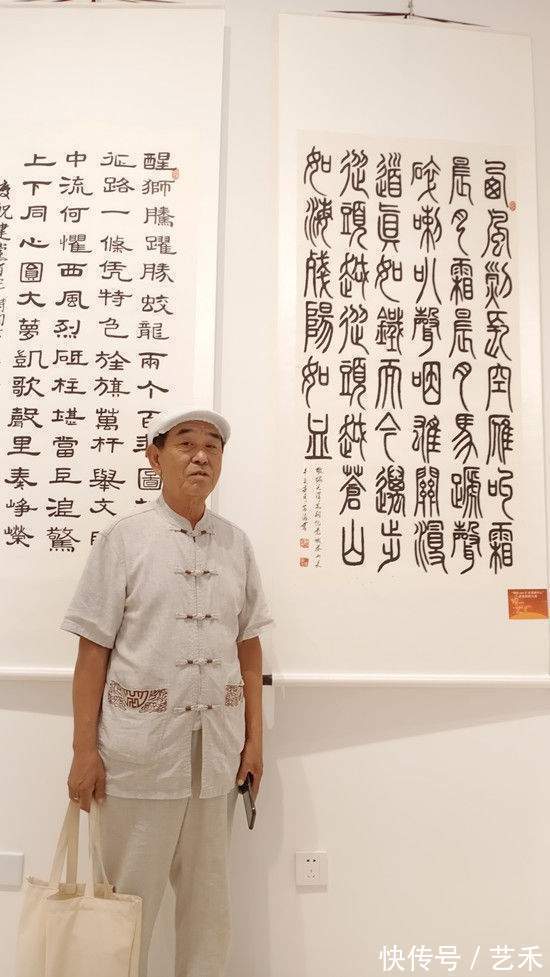 西風烈長空雁叫霜
晨月霜晨月馬蹄聲
碎喇叭聲咽雄關漫
道真如鐵而今邁步
從頭越從頭越蒼山
如海殘陽如血
醒獅騰躍勝蛟龍兩个百年圖
征路一條凭特色旌旗萬杆舉文
中流何懼西風烈砥柱堪當巨浪驚
上下同心圓大夢凱歌聲里奏崢嶸
慶祝建黨百年
快传号 / 艺禾